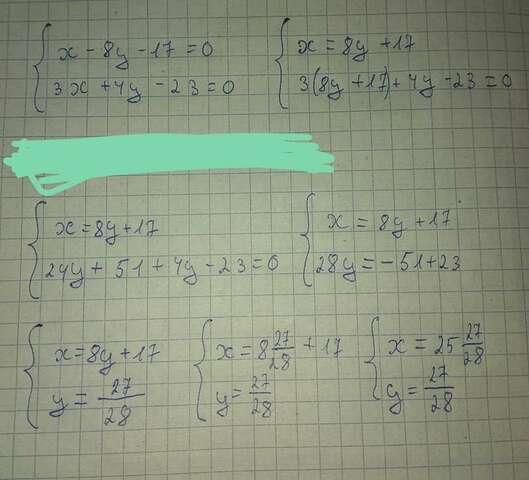 x - 8y - 17 = 0
3x + 4y - 23 = 0
x = 8y + 17
3(8y + 17) + 4y - 23 = 0
x = 8y + 17
24y + 51 + 4y - 23 = 0
x = 8y + 17
28y = -51 + 23
x = 8y + 17
y = 27/28
x = 8 27/28 + 17
y = 27/28
x = 25 27/28
y = 27/28